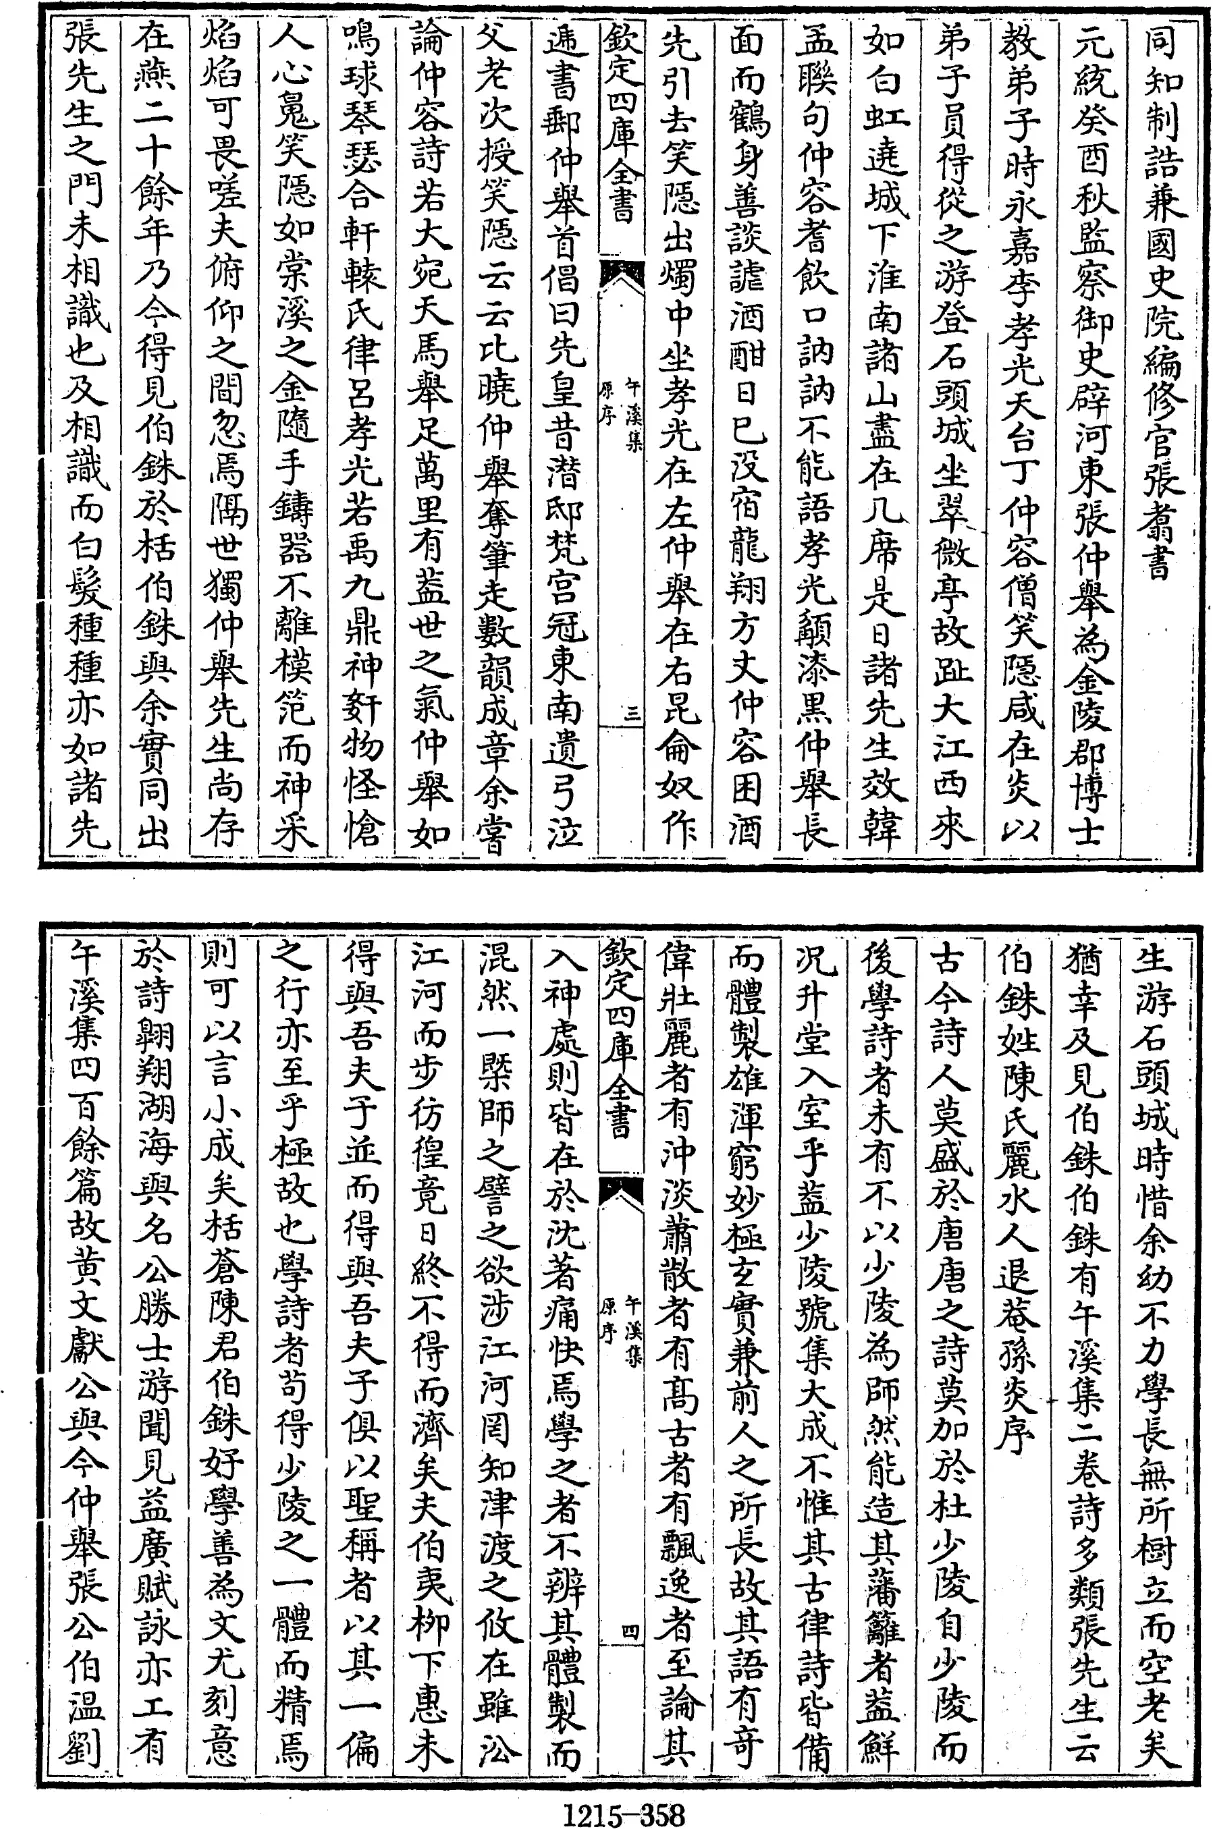 同知制誥兼國史院編修官張翥書
元統癸酉秋監察御史辟河東張仲舉為金陵郡博士
教弟子時永嘉李孝光天台丁仲容僧笑隱咸在炎以
弟子員得從之游登石頭城坐翠微亭故趾大江西來
如白虹遶城下淮南諸山盡在几席是日諸先生效韓
孟聯句仲容耆飲口訥訥不能語孝光顧漆黒仲舉長
面而鶴身善談謔酒酣日已没宿龍翔方丈仲容困酒
先引去笑隱出燭中坐孝光在左仲舉在右昆侖奴作
欽定四庫全書
午溪集
原序
三
遞書郵仲舉首倡曰先皇昔潛邸梵宮冠東南遺弓泣
父老次授笑隱云云比曉仲舉奪筆走數韻成章余嘗
論仲容詩若大宛天馬舉足萬里有葢世之氣仲舉如
鳴球琴瑟合軒轅氏律呂孝光若禹九鼎神姧物怪愴
人心鬼笑隱如棠溪之金隨手鑄器不離模笵而神采
焰焰可畏嗟夫俯仰之間忽焉隔世獨仲舉先生尚存
在燕二十餘年乃今得見伯銖於栝伯銖與余實同出
張先生之門未相識也及相識而白髮種種亦如諸先
生游石頭城時惜余幼不力學長無所樹立而空老矣
猶幸及見伯銖伯銖有午溪集二卷詩多類張先生云
伯銖姓陳氏麗水人退菴孫炎序
古今詩人莫盛於唐唐之詩莫加於杜少陵自少陵而
後學詩者未有不以少陵為師然能造其藩籬者葢鮮
況升堂入室乎葢少陵號集大成不惟其古律詩皆備
而體製雄渾窮妙極玄實兼前人之所長故其語有奇
偉壯麗者有沖淡蕭散者有髙古者有飄逸者至論其
欽定四庫全書
午溪集
原序
四
入神處則皆在於沈著痛快焉學之者不辨其體製而
混然一槩師之譬之欲涉江河罔知津渡之攸在雖沿
江河而步彷徨竟日終不得而濟矣夫伯夷柳下惠未
得與吾夫子並而得與吾夫子俱以聖稱者以其一偏
之行亦至乎極故也學詩者苟得少陵之一體而精焉
則可以言小成矣栝蒼陳君伯銖好學善為文尤刻意
於詩翺翔湖海與名公勝士游聞見益廣賦詠亦工有
午溪集四百餘篇故黃文獻公與今仲舉張公伯溫劉
1215-358